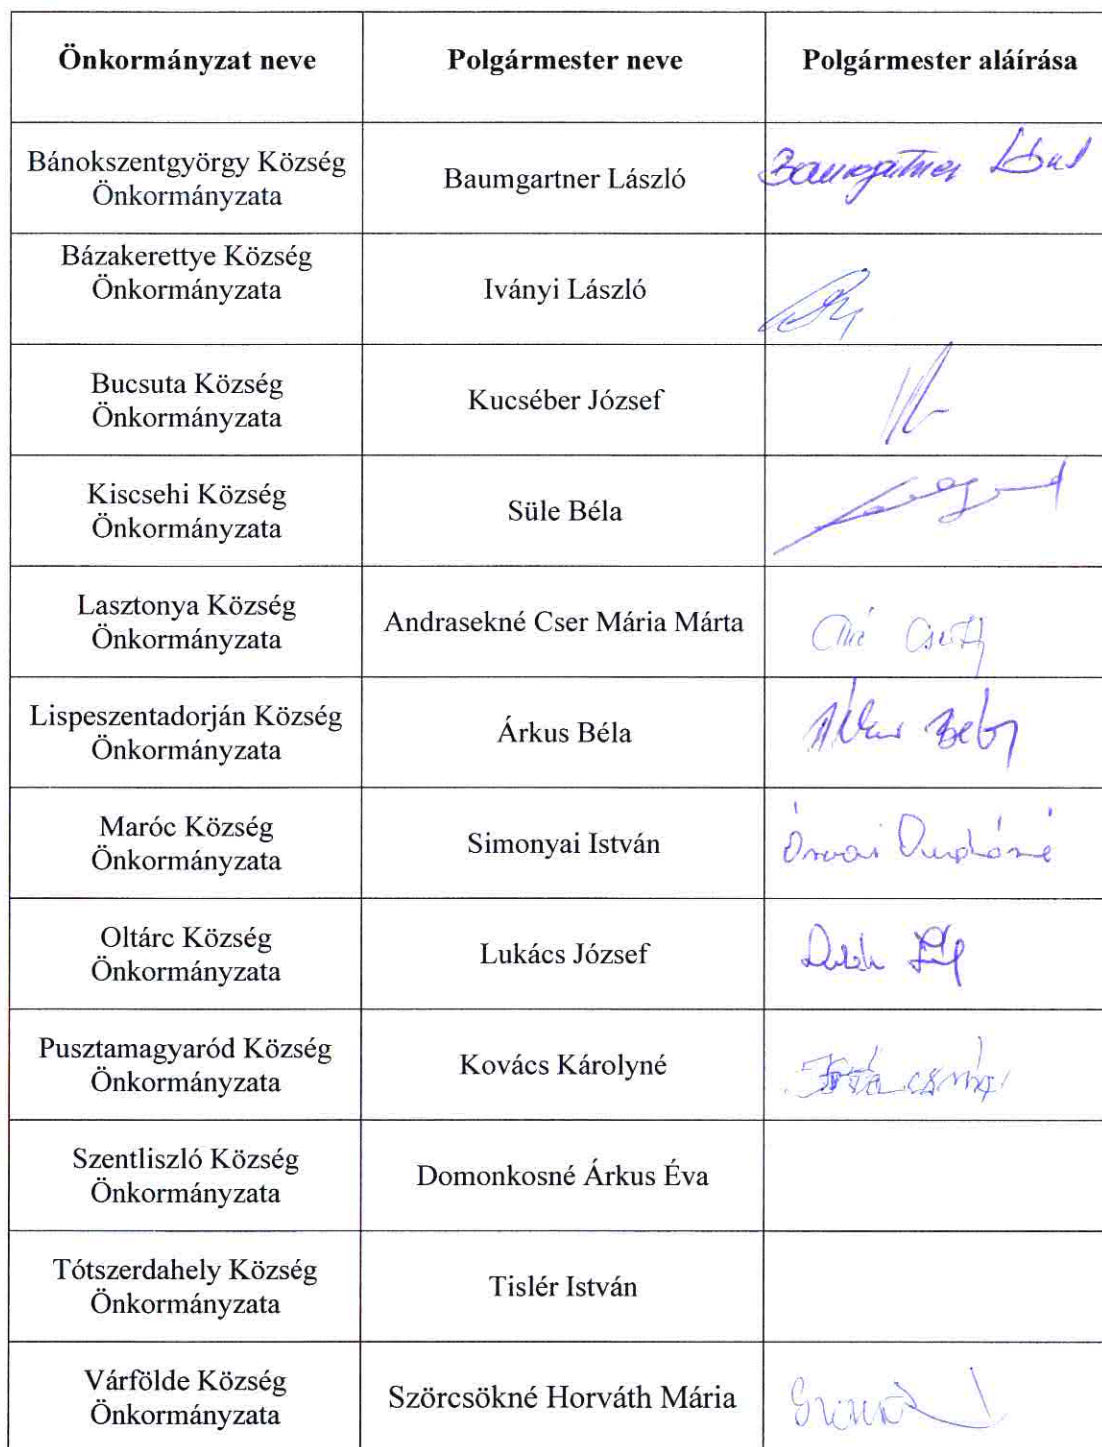 Önkormányzat neve
Polgármester neve
Polgármester aláírása
Bánokszentgyörgy Község
Önkormányzata
Baumgartner László
Baumgartner
Bázakerettye Község
Önkormányzata
Iványi László
Bucsuta Község
Önkormányzata
Kucséber József
Kiscsehi Község
Önkormányzata
Süle Béla
Lasztonya Község
Önkormányzata
Andrasekné Cser Mária Márta
Lispeszentadorján Község
Önkormányzata
Árkus Béla
Maróc Község
Önkormányzata
Simonyai István
Oltárc Község
Önkormányzata
Lukács József
Pusztamagyaród Község
Önkormányzata
Kovács Károlyné
Szentliszló Község
Önkormányzata
Domonkosné Árkus Éva
Tótszerdahely Község
Önkormányzata
Tislér István
Várfölde Község
Önkormányzata
Szörcsökné Horváth Mária